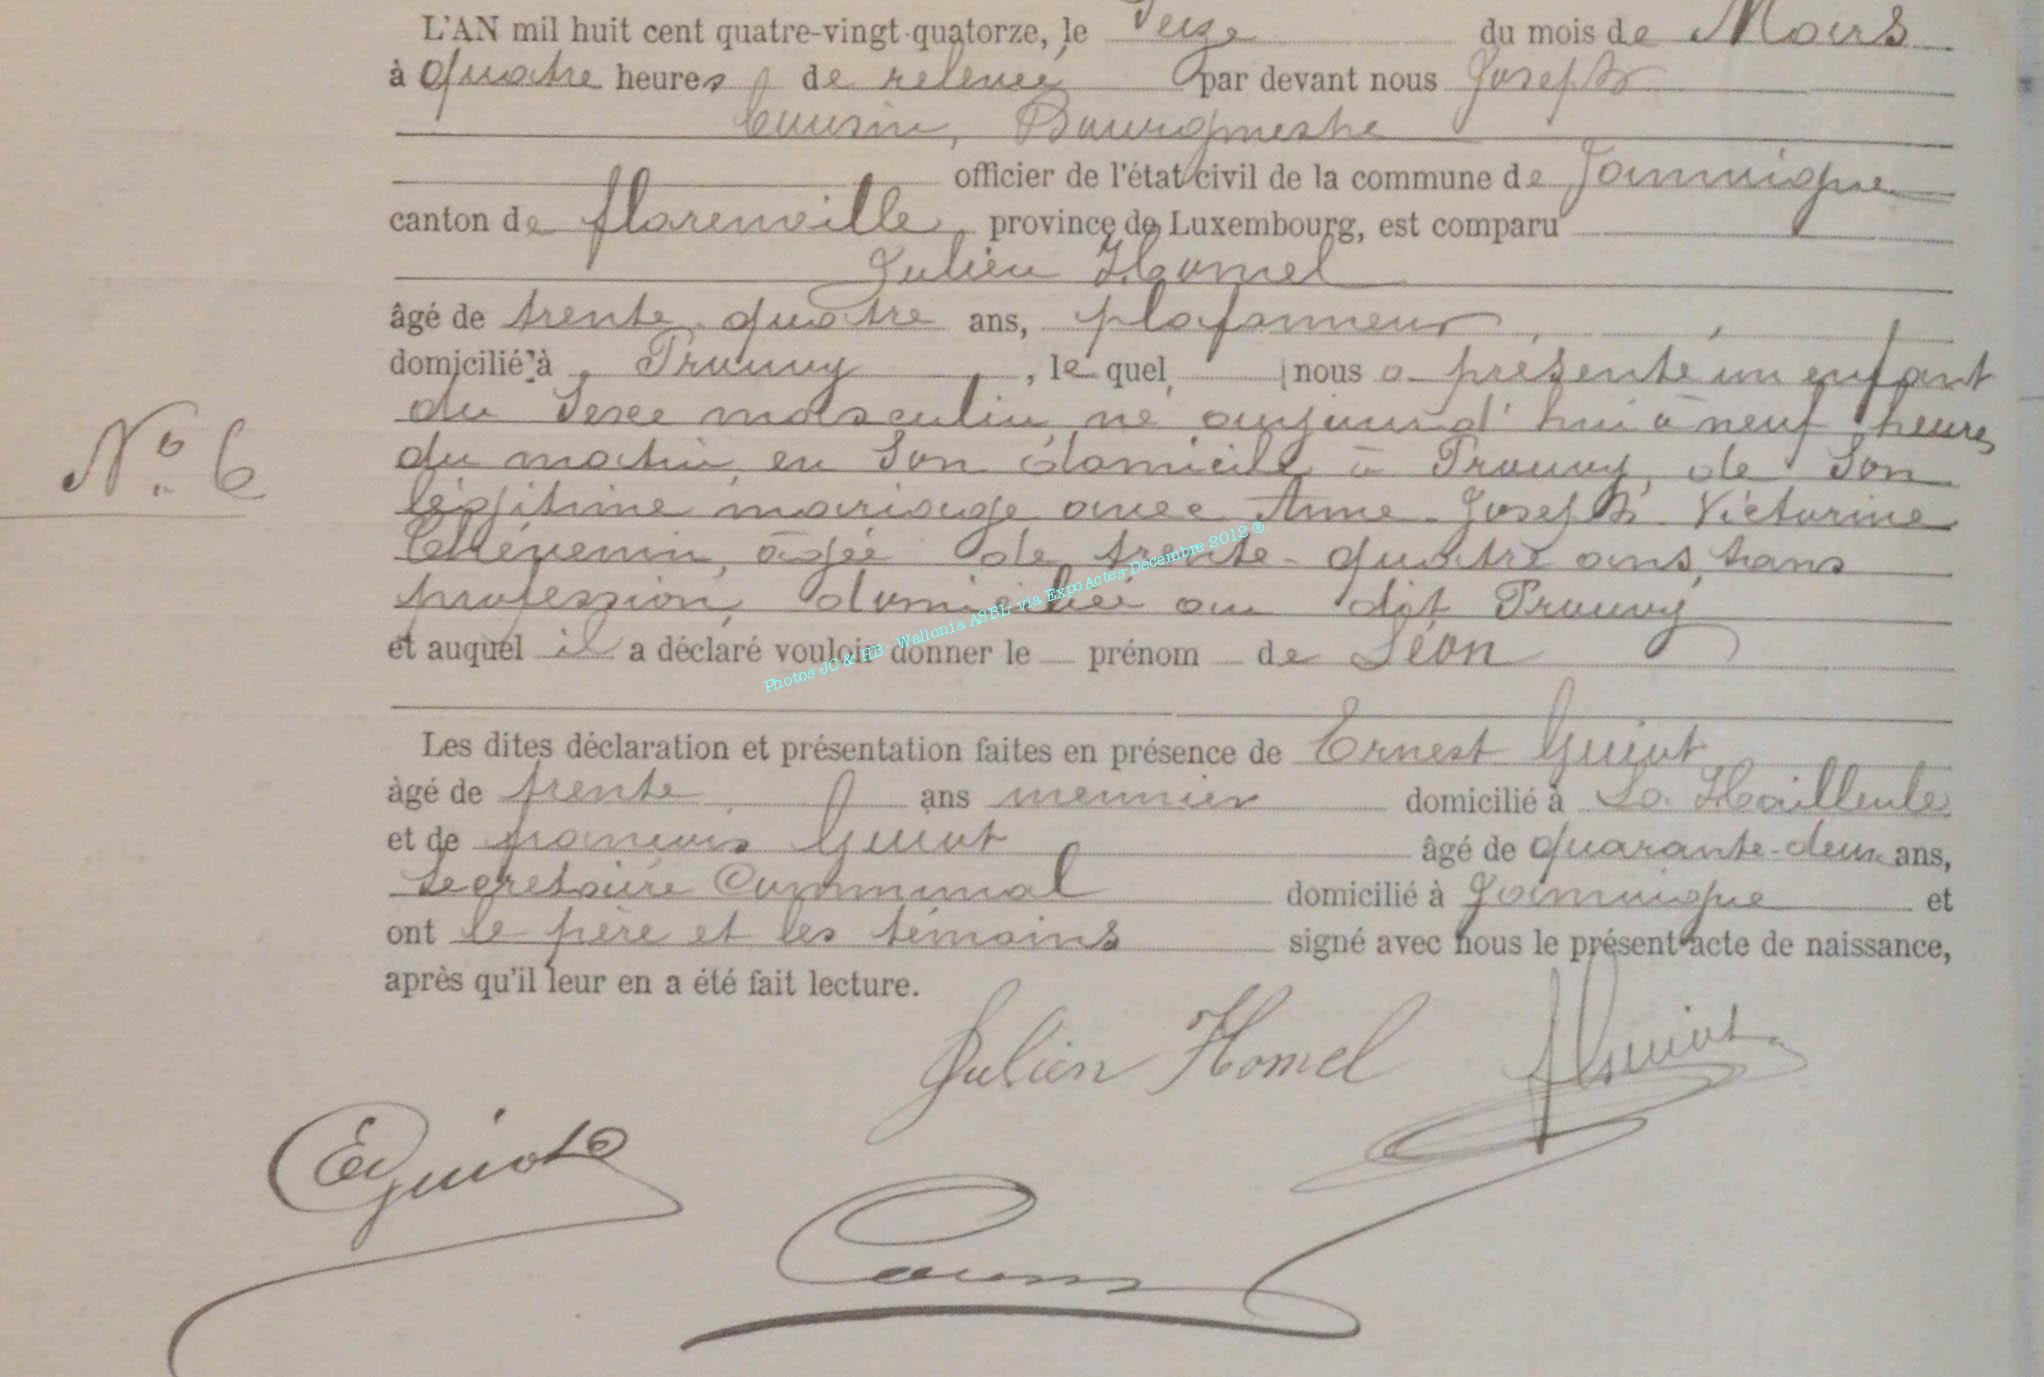 L'AN mil huit cent quatre-vingt-quatorze, le du mois de Mars
à quatre heures de relevée par devant nous Joseph
Cousin, Bourgmestre
officier de l'état civil de la commune de Jamoigne
canton de florenville province de Luxembourg, est comparu
Julien Homel
âgé de trente quatre ans, plafonneur,
domicilié à Prouvy, le quel nous a présenté un enfant
du Sexe masculin, né aujourd'hui à neuf heures
du matin, en Son domicile à Prouvy, de Son
légitime mariage avec Anne Joseph Victorine
Thévenin, âgée de trente-quatre ans, sans
profession, domiciliée au dit Prouvy
et auquel il a déclaré vouloir donner le prénom de Léon
Photos JC & HB - Wallonia ASBL via ExpoActes-Décembre 2012 ®
Les dites déclaration et présentation faites en présence de Ernest Guiot
âgé de trente ans meunier domicilié à La Hailleule
et de françois Guiot âgé de quarante-deux ans,
Secrétaire Communal domicilié à Jamoigne et
ont le père et les témoins signé avec nous le présent acte de naissance,
après qu'il leur en a été fait lecture.
N° 6
Julien Homel
fGuiot
EGuiot
Cousin